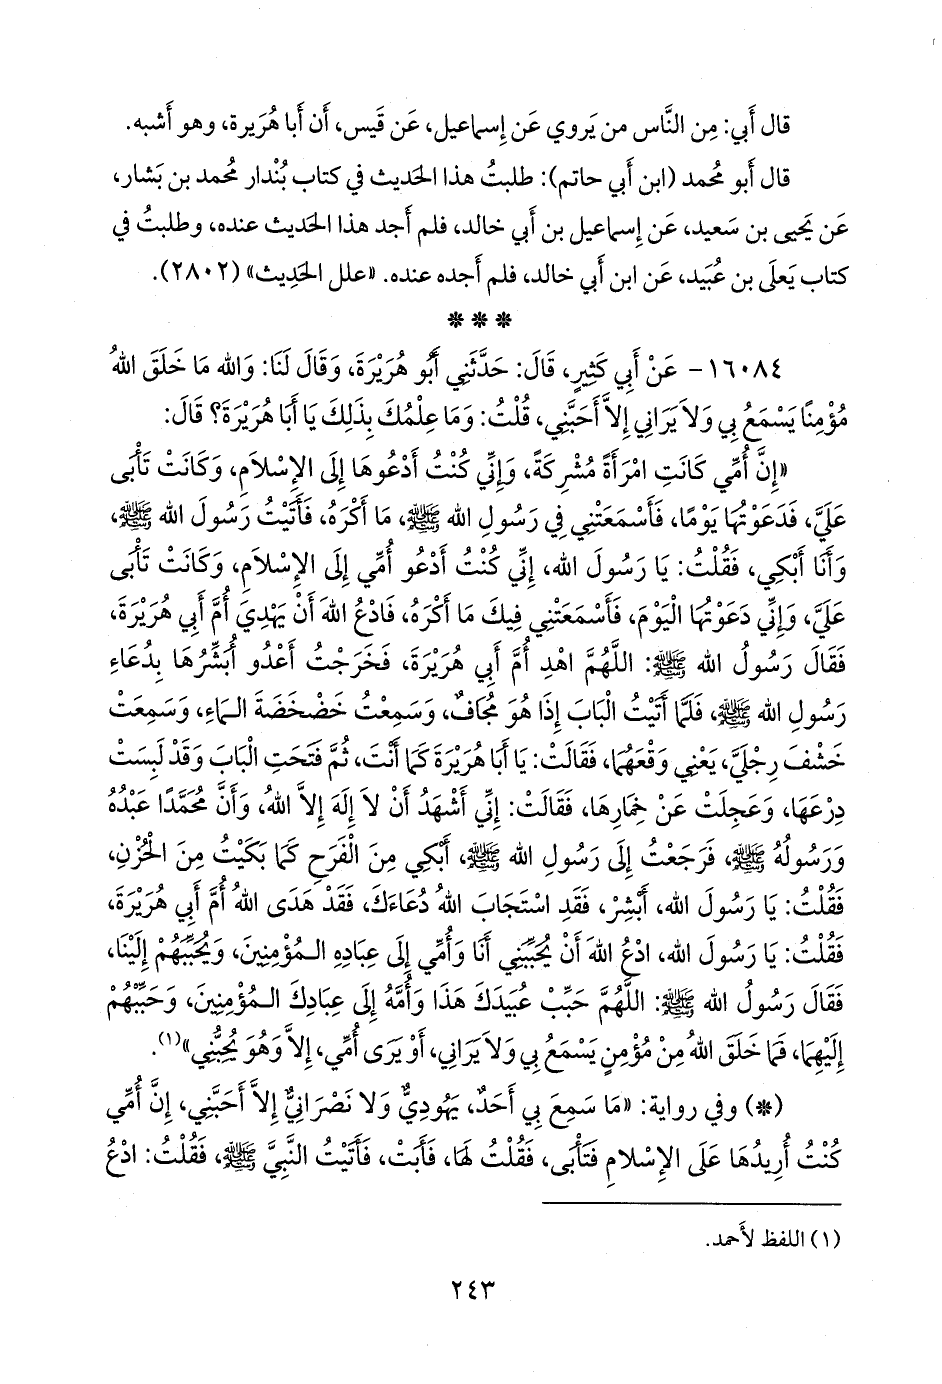 قال أَبي: مِن النَّاس من يَروي عَن إِسماعيل، عَن قَيس، أَن أَبا هُرَيرة، وهو أَشبه.
قال أَبو مُحمد (ابن أَبي حاتم): طلبتُ هذا الحَديث في كتاب بُنْدار مُحمد بن بَشار،
عَن يَحيى بن سَعيد، عَن إِسماعيل بن أَبي خالد، فلم أَجد هذا الحَديث عنده، وطلبتُ في
كتاب يَعلَى بن عُبَيد، عَن ابن أَبي خالد، فلم أَجده عنده. «علل الحَديث» (٢٨٠٢).
* * *
١٦٠٨٤- عَنْ أَبِي كَثِيرٍ، قَالَ: حَدَّثَنِي أَبُو هُرَيْرَةَ، وَقَالَ لَنَا: وَالله مَا خَلَقَ اللهُ
مُؤْمِنًا يَسْمَعُ بِي وَلاَ يَرَانِي إِلاَّ أَحَبَّنِي، قُلْتُ: وَمَا عِلْمُكَ بِذَلِكَ يَا أَبَا هُرَيْرَةَ؟ قَالَ:
«إِنَّ أُمِّي كَانَتِ امْرَأَةً مُشْرِكَةً، وَإِنِّي كُنْتُ أَدْعُوهَا إِلَى الإِسْلاَمِ، وَكَانَتْ تَأْبَى
عَلَيَّ، فَدَعَوْتُهَا يَوْمًا، فَأَسْمَعَتْنِي فِي رَسُولِ الله ﷺ، مَا أَكْرَهُ، فَأَتَيْتُ رَسُولَ الله ﷺ،
وَأَنَا أَبْكِي، فَقُلْتُ: يَا رَسُولَ الله، إِنِّي كُنْتُ أَدْعُو أُمِّي إِلَى الإِسْلاَمِ، وَكَانَتْ تَأْبَى
عَلَيَّ، وَإِنِّي دَعَوْتُهَا الْيَوْمَ، فَأَسْمَعَتْنِي فِيكَ مَا أَكْرَهُ، فَادْعُ اللهَ أَنْ يَهْدِيَ أُمَّ أَبِي هُرَيْرَةَ،
فَقَالَ رَسُولُ الله ﷺ: اللَّهُمَّ اهْدِ أُمَّ أَبِي هُرَيْرَةَ، فَخَرَجْتُ أَعْدُو أُبَشِّرُهَا بِدُعَاءِ
رَسُولِ الله ﷺ، فَلَمَّا أَتَيْتُ الْبَابَ إِذَا هُوَ مُجَافٌ، وَسَمِعْتُ خَضْخَضَةَ الـمَاءِ، وَسَمِعَتْ
خَشْفَ رِجْلَيَّ، يَعْنِي وَقْعَهُمَا، فَقَالَتْ: يَا أَبَا هُرَيْرَةَ كَمَا أَنْتَ، ثُمَّ فَتَحَتِ الْبَابَ وَقَدْ لَبِسَتْ
دِرْعَهَا، وَعَجِلَتْ عَنْ خِمَارِهَا، فَقَالَتْ: إِنِّي أَشْهَدُ أَنْ لاَ إِلَهَ إِلاَّ اللهُ، وَأَنَّ مُحَمَّدًا عَبْدُهُ
وَرَسُولُهُ ﷺ، فَرَجَعْتُ إِلَى رَسُولِ الله ﷺ، أَبْكِي مِنَ الْفَرَحِ كَمَا بَكَيْتُ مِنَ الْحُزْنِ،
فَقُلْتُ: يَا رَسُولَ الله، أَبْشِرْ، فَقَدِ اسْتَجَابَ اللهُ دُعَاءَكَ، فَقَدْ هَدَى اللهُ أُمَّ أَبِي هُرَيْرَةَ،
فَقُلْتُ: يَا رَسُولَ الله، ادْعُ اللهَ أَنْ يُحَبِّبَنِي أَنَا وَأُمِّي إِلَى عِبَادِهِ الـمُؤْمِنِينَ، وَيُحَبِّبَهُمْ إِلَيْنَا،
فَقَالَ رَسُولُ الله ﷺ: اللَّهُمَّ حَبِّبْ عُبَيْدَكَ هَذَا وَأُمَّهُ إِلَى عِبَادِكَ الـمُؤْمِنِينَ، وَحَبِّبْهُمْ
إِلَيْهِمَا، فَمَا خَلَقَ اللهُ مِنْ مُؤْمِنٍ يَسْمَعُ بِي وَلاَ يَرَانِي، أَوْ يَرَى أُمِّي، إِلاَّ وَهُوَ يُحِبُّنِي»(١).
(*) وفي رواية: «مَا سَمِعَ بِي أَحَدٌ، يَهُودِيٌّ وَلا نَصْرَانِيٌّ إِلاَّ أَحَبَّنِي، إِنَّ أُمِّي
كُنْتُ أُرِيدُهَا عَلَى الإِسْلامِ فَتَأْبَى، فَقُلْتُ لَهَا، فَأَبَتْ، فَأَتَيْتُ النَّبِيَّ ﷺ، فَقُلْتُ: ادْعُ
(١) اللفظ لأَحمد.
٢٤٣